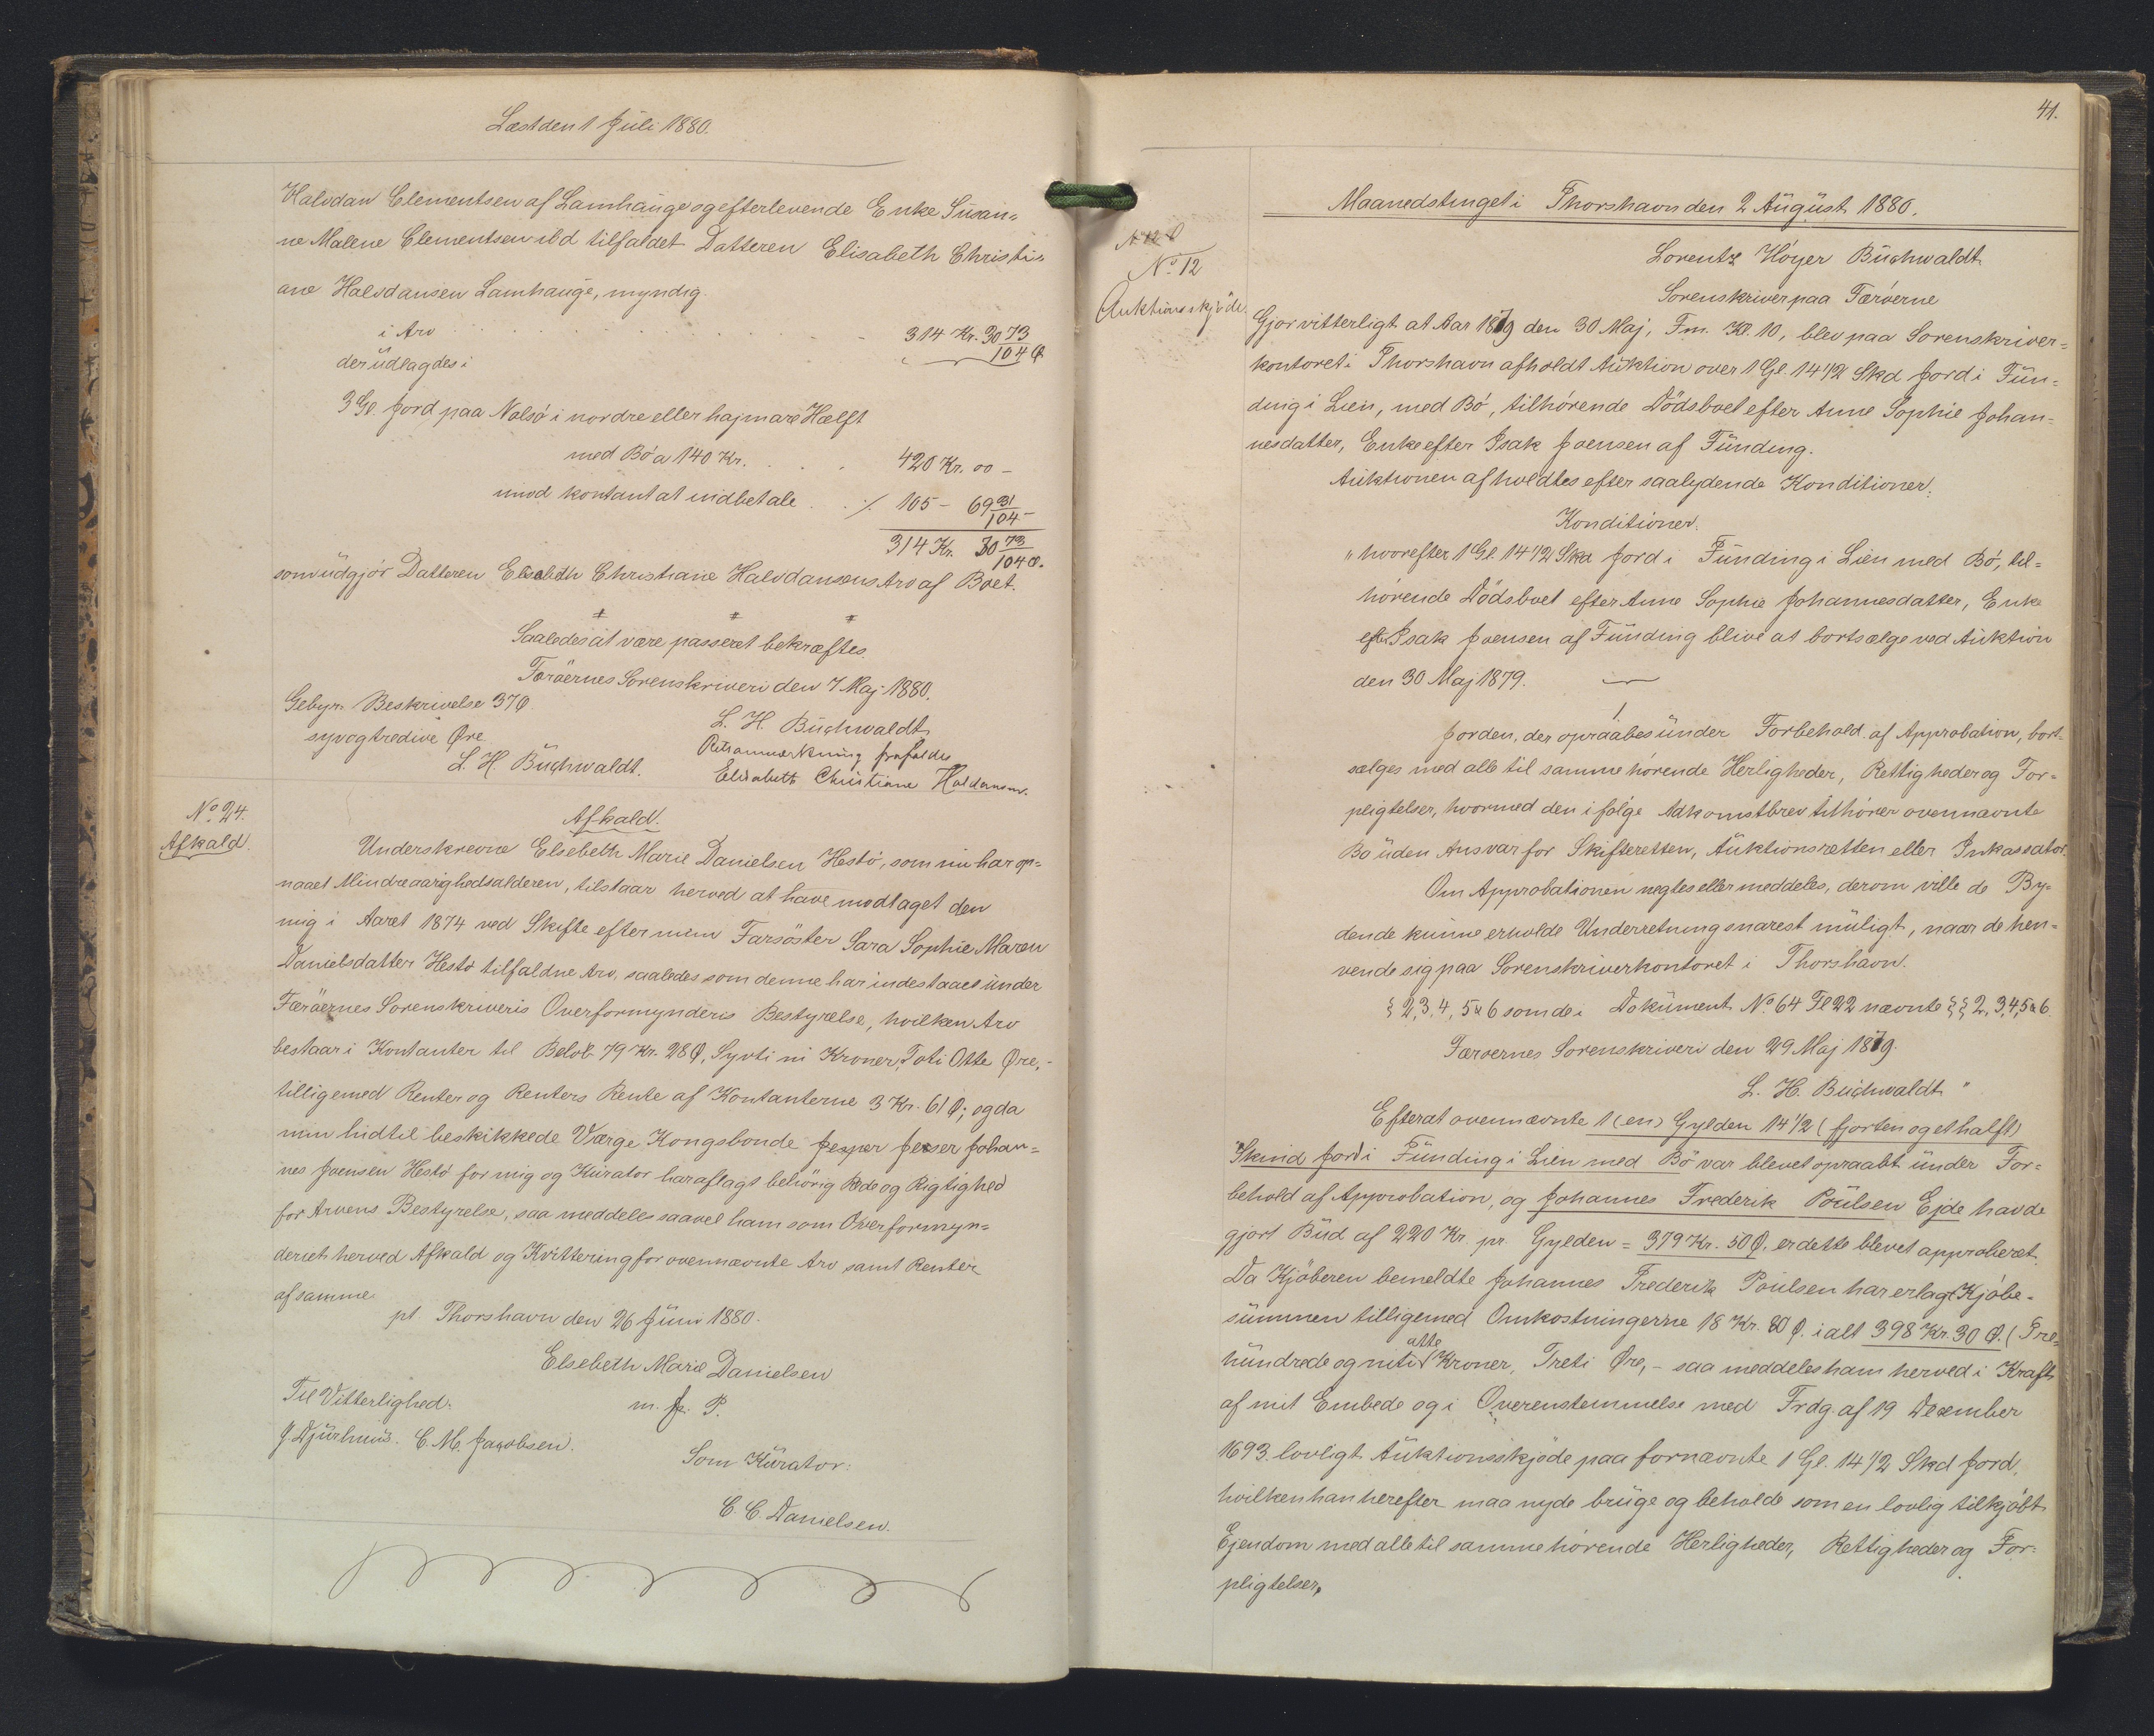 Læst den 1 Juli 1880.
Halvdan Clementsen af Lamhauge og efterlevende Enke Susan=
ne Malene Clementsen ibd tilfaldet Datteren Elisabeth Christi=
ane Halvdansen Lamhauge, myndig.
i Arv . . . . . . 314 Kr. 30 73/104 Ø
der udlagdes i
3 Gl. Jord paa Nolsø i nordre eller hajmare Hælft
med Bø a 140 Kr. . . . 420 Kr. 00 –
imod kontant at indbetale . . ./. 105 – 69 31/104 –
314 Kr. 30 73/104 Ø.
som udgjør Datteren Elisabeth Christiane Halvdansens Arv af Boet.
Saaledes at være passeret bekræftes.
Færøernes Sorenskriveri den 7 Maj 1880.
Gebyr. Beskrivelse 37 Ø.
syvogtredive Øre
L. H. Buchwaldt.
L. H. Buchwaldt
Retsanmærkning frafaldes
Elisabeth Christiane Haldansen.
No 24.
Afkald.
Afkald.
Underskrevne Elsebeth Marie Danielsen Hestø, som nu har op=
naaet Mindreaarighedsalderen, tilstaar herved at have modtaget den
mig i Aaret 1874 ved Skifte efter min Farsöster Sara Sophie Maren
Danielsdatter Hestø tilfaldne Arv, saaledes som denne har indestaaet under
Færøernes Sorenskriveris Overformynderis Bestyrelse, hvilken Arv
bestaar i Kontanter til Beløb 79 Kr. 28 Ø, Syvti ni Kroner, Toti Otte Øre, –
tilligemed Renter og Renters Rente af Kontanterne 3 Kr. 61 Ø; og da
min hidtil beskikkede Værge Kongsbonde Jesper Johan=
nes Joensen Hestø for mig og Kurator har aflagt behörig Rede og Rigtighed
for Arvens Bestyrelse, saa meddeles saavel ham som Overformyn=
deriet herved Afkald og Kvittering for ovennævnte Arv samt Renter
af samme.
pt. Thorshavn den 26 Juni 1880.
Elsebeth Marie Danielsen
m. f. P.
Til Vitterlighed:
J. Djurhuus. C. M. Jacobsen.
Som Kurator:
C. C. Danielsen.
41.
Maanedstinget i Thorshavn den 2 August 1880.
No 12
Auktionsskjøde
Lorentz Høyer Buchwaldt
Sorenskriver paa Færøerne
Gjør vitterligt at Aar 1879 den 30 Maj, Fm. Kl. 10, blev paa Sorenskriver=
kontoret i Thorshavn afholdt Auktion over 1 Gl. 14 1/2 Skd Jord i Fun=
ding i Lien, med Bø, tilhørende Dödsboet efter Anne Sophie Johan=
nesdatter, Enke efter Isak Joensen af Funding.
Auktionen afholdtes efter saalydende Konditioner.
Konditioner.
" hvorefter 1 Gl. 14 1/2 Skd Jord i Funding i Lien med Bø, til=
hørende Dödsboet efter Anne Sophie Johannesdatter, Enke
efter Isak Joensen af Funding blive at bortsælge ved Auktion
den 30 Maj 1879.
1
Jorden, der opraabes under Forbehold af Approbation, bort=
sælges med alle til samme hørende Herligheder, Rettigheder og For=
pligtelser, hvormed den ifølge Adkomstbrev tilhører ovennævnte
Bo uden Ansvar for Skifteretten, Auktionsretten eller Inkassator.
Om Approbationen negtes eller meddeles, derom ville de By=
dende kunne erholde Underretning snarest muligt, naar de hen=
vende sig paa Sorenskriverkontoret i Thorshavn.
§ 2, 3, 4, 5 & 6 som de i Dokument No 64 Fl 22 nævnte §§ 2, 3, 4, 5 & 6.
Færøernes Sorenskriveri den 29 Maj 1879.
L. H. Buchwaldt "
Efterat ovennævnte 1 (en) Gylden 14 1/2 (fjorten og et halft)
Skind Jord i Funding i Lien med Bø var blevet opraabt under For=
behold af Approbation, og Johannes Frederik Poulsen Ejde havde
gjort Bud af 220 Kr. pr. Gylden = 379 Kr. 50 Ø, er dette blevet approberet.
Da Kjøberen bemeldte Johannes Frederik Poulsen har erlagt Kjøbe=
summen tilligemed Omkostningerne 18 Kr. 80 Ø. ialt 398 Kr. 30 Ø. (Tre=
hundrede og niti otte Kroner, Treti Øre, – saa meddeles ham herved i Kraft
af mit Embede og i Overenstemmelse med Frdg. af 19 December
1693. lovligt Auktionsskjøde paa fornævnte 1 Gl. 14 1/2 Skd Jord,
hvilken han herefter maa nyde bruge og beholde som en lovlig tilkjøbt
Ejendom med alle til samme hørende Herligheder, Rettigheder og For=
pligtelser,